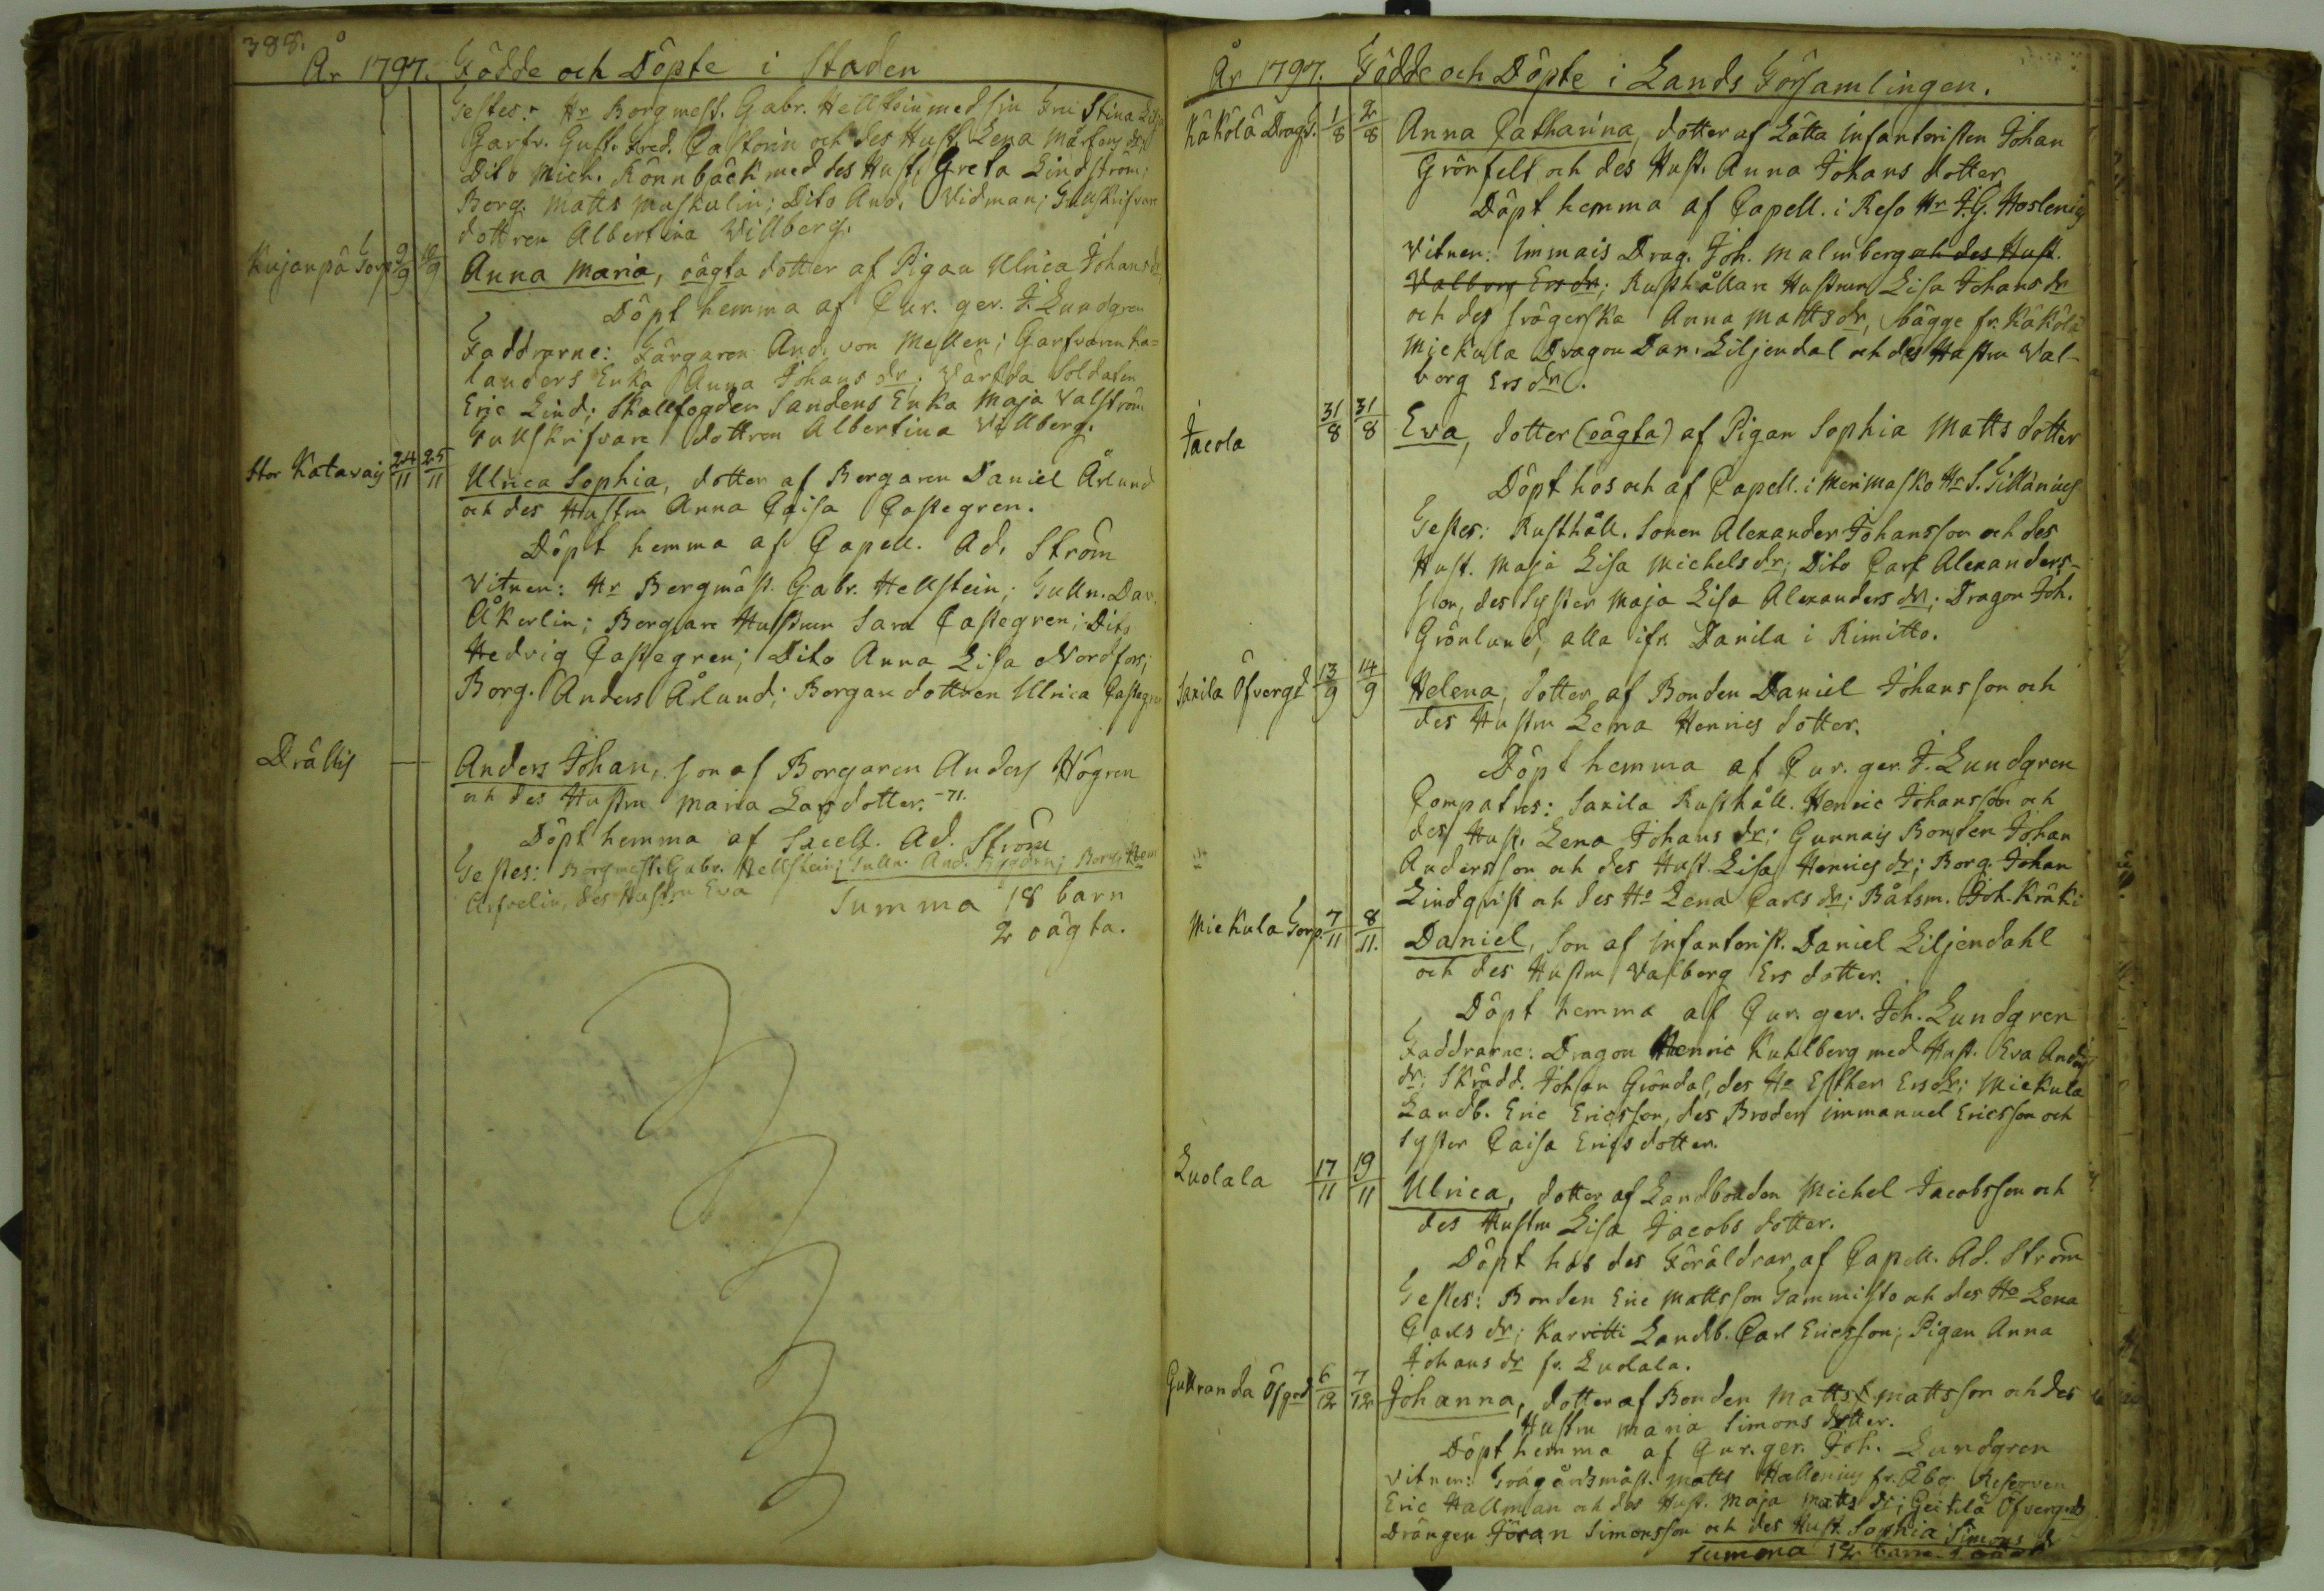 388.
År 1797. Födde och Döpte i Staden
Testes: Hr Borgmest. Gabr. Hellstein med sin Fru Stina
Garfv. Gust. Fred. Castorin och des Hust. Lena Mårtens dr;
Dito Mich. Rönnbäck med des Hust. Greta Lindström;
Borg. Matts Maskulin; Dito And. Vidman; Tullskrifvare
dottren Albertina Villberg.
Kujanpä Torp 9/9 10/9 Anna Maria, oägta dotter af Pigan Ulrica Johans dr,
Döpt hemma af Cur. ger. J. Lundgren
Faddrarne: Färgaren And. von Mellen; Garfvaren Ka=
landers Enka Anna Johans dr; Värfda Soldaten
Eric Lind; Skallfogden Sandens Enka Maja Valström
Tullskrifvare dottren Albertina Villberg.
Stor Katavais 24/11 25/11 Ulrica Sophia, dotter af Borgaren Daniel Ålund
och des Hustru Anna Caisa Castegren.
Döpt hemma af Capell. Ad. Ström
Vitnen: Hr Borgmäst. Gabr. Hellstein; Tulln. Dav.
Åkerlin; Borgare Hustrun Sara Castegren; Dito
Hedvig Castegren; Dito Anna Lisa Nordfors;
Borg. Anders Ålund; Borgare dottren Ulrica Castegren
Drällis — Anders Johan, son af Borgaren Anders Högren
och des Hustru Maria Lars dotter. -71.
Döpt hemma af Sacell. Ad. Ström
Testes: Borgmest. Gabr. Hellstein; Tulln. And. Borg.
Arfvelin, des Hustru Eva
Summa 18 barn
2 oägta.
År 1797. Födde och Döpte i Lands Församlingen.
Käkölä Drags T. 1/8 2/8 Anna Catharina, dotter af Lätta Infanteristen Johan
Grönfelt och des Hust. Anna Johans dotter
Döpt hemma af Capell. i Reso Hr J.G. Hoslenius
Vitnen: Immais Drag. Joh. Malmberg och des Hust.
Valborg Ers dr; Rusthållare Hustrun Lisa Johans dr
och des svägerska Anna Matts dr, bägge fr. Käkölä
Miekula Dragon Dan. Liljendal och des Hustru Val-
borg Ers dr.
Jacola 31/8 31/8 Eva, dotter (oägta) af Pigan Sophia Matts dotter
Döpt hos och af Capell. i Merimasko Hr S. Gillänius
Testes: Rusthåll. Sonen Alexander Johansson och des
Hust. Maja Lisa Michels dr; Dito Carl Alexanders-
son, des Syster Maja Lisa Alexanders dr; Dragon Joh.
Grönlund, alla ifr. Danila i Rimitto.
Saxila Öfvergd 13/9 14/9 Helena, dotter af Bonden Daniel Johansson och
des Hustru Lena Henrics dotter.
Döpt hemma af Cur. ger. J. Lundgren
Compatres: Saxila Rusthåll. Henric Johansson och
des Hust. Lena Johans dr; Gunnais Bonden Johan
Andersson och des Hust. Lisa Henrics dr; Borg. Johan
Lindqvist och des Ho Lena Carls dr; Båtsm. Joh. Kräki
Miekula Torp. 7/11 8/11. Daniel, Son af Infanterist. Daniel Liljendahl
och des Hustru Valborg Ers dotter.
Döpt hemma af Cur. ger. Joh. Lundgren
Faddrarne: Dragon Henric Kuhlberg med Hust. Eva Anders
dr; Skrädd. Johan Gröndal, des Ho Esther Ers dr; Miekula
Landb. Eric Ericsson, des Broder Immanuel Ericsson och
Syster Caisa Erics dotter.
Luolala 17/11 19/11 Ulrica, dotter af Landbonden Michel Jacobsson och
des Hustru Lisa Jacobs dotter.
Döpt hos des Föräldrar, af Capell. Ad. Ström
Testes: Bonden Eric Mattsson Tammisto och des Ho Lena
Carls dr; Karvitti Landb. Carl Ericsson; Pigan Anna
Johans dr fr. Luolala.
Gullranda Öfgrd 6/12 7/12 Johanna, dotter af Bonden Matts Mattsson och des
Hustru Maria Simons dotter.
Döpt hemma af Cur. ger. Joh. Lundgren
Vitnen: Trägårdsmäst. Matts Hallenius fr. Åbo
Eric Hallman och des Hust. Maja Matts dr; Geitilä Öfvergrds
Drängen Jöran Simonsson och des Hust. Sophia Simons dr
Summa 12 barn. 1 oägta